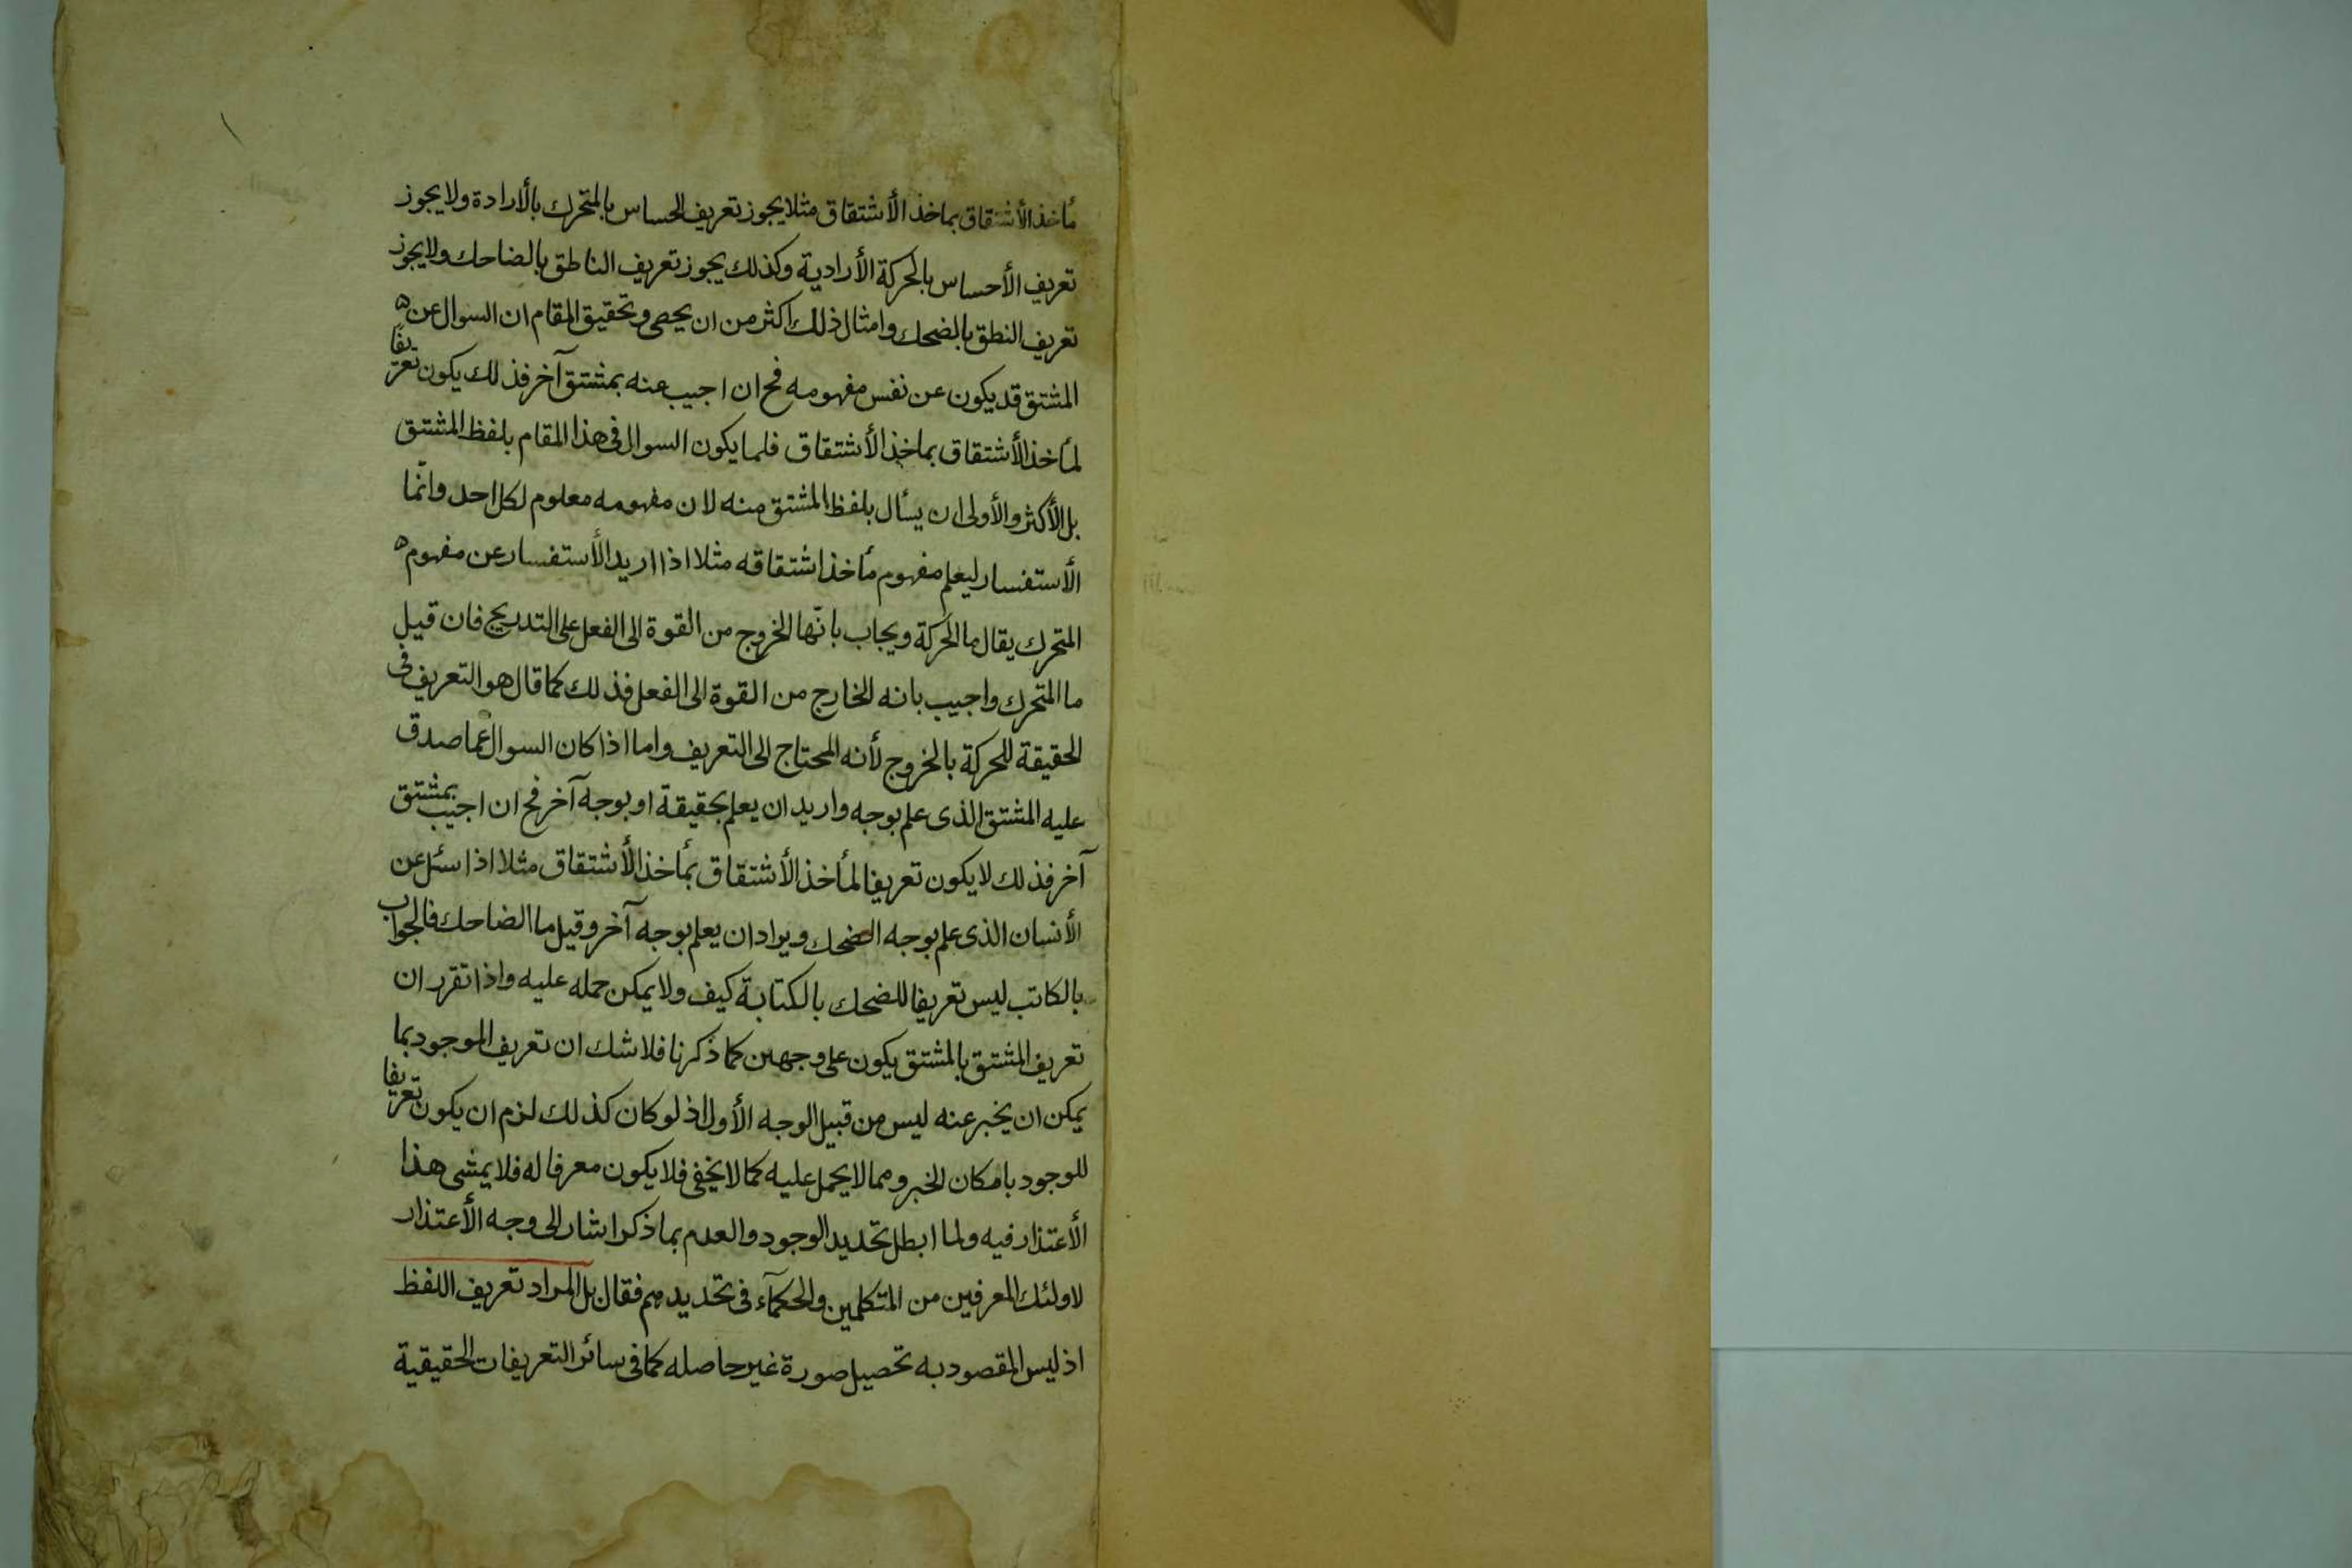 مأخذ الأشتقاق بماخذ الأشتقاق مثلا يجوز تعريف الحساس بالمتحرك بالأرادة ولا يجوز
تعريف الأحساس بالحركة الأرادية وكذلك يجوز تعريف الناطق بالضاحك ولا يجوز
تعريف النطق بالضحك وامثال ذلك اكثر من ان يحصى وتحقيق المقام ان السوال عن
المشتق قد يكون عن نفس مفهومه فح ان اجيب عنه بمشتق آخر فذلك يكون تعريفا
لمأخذ الأشتقاق بماخذ الأشتقاق فلما يكون السوال فى هذا المقام بلفظ المشتق
بل الأكثر والأولى ان يسأل بلفظ المشتق منه لان مفهومه معلوم لكل احد وانّما
الأستفسار ليعلم مفهوم مأخذ اشتقاقه مثلا اذا اريد الأستفسار عن مفهوم
المتحرك يقال ما الحركة ويجاب بانّها الخروج من القوة الى الفعل على التدريج فان قيل
ما المتحرك واجيب بانه الخارج من القوة الى الفعل فذلك كما قال هو التعريف فى
الحقيقة للحركة بالخروج لأنه المحتاج الى التعريف واما اذا كان السوال عما صدق
عليه المشتق الذى علم بوجه واريد ان يعلم بحقيقة او بوجه آخر فح ان اجيب بمشتق
آخر فذلك لا يكون تعريفا لمأخذ الأشتقاق بمأخذ الأشتقاق مثلا اذا سئل عن
الأنسان الذى علم بوجه الضحك ويراد ان يعلم بوجه آخر وقيل ما الضاحك فالجواب
بالكاتب ليس تعريفا للضحك بالكتابة كيف ولا يمكن حمله عليه واذا تقرر ان
تعريف المشتق بالمشتق يكون على وجهين كما ذكرنا فلا شك ان تعريف الموجود بما
يمكن ان يخبر عنه ليس من قبيل الوجه الأول اذ لو كان كذلك لزم ان يكون تعريفا
للوجود بامكان الخبر ومما لا يحمل عليه كما لا يخفى فلا يكون معرفا له فلا يمشى هذا
الأعتذار فيه ولما ابطل تحديد الوجود والعدم بما ذكر اشار الى وجه الأعتذار
لاولئك المعرفين من المتكلمين والحكمآء فى تحديدهم فقال بل المراد تعريف اللفظ
اذ ليس المقصود به تحصيل صورة غير حاصله كما فى سائر التعريفات الحقيقية